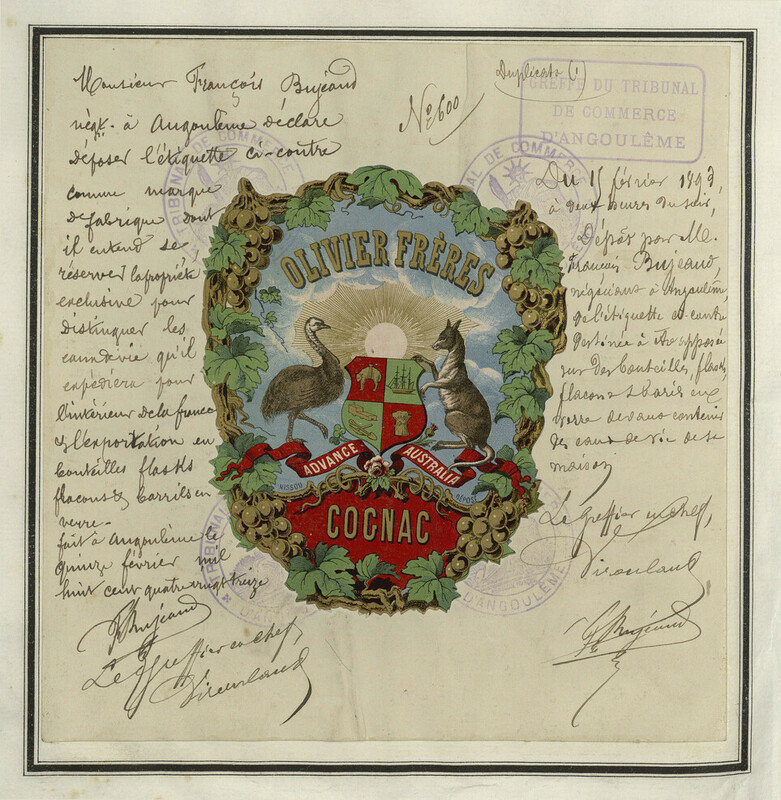 Monsieur François Bujeaud
négt. à Angoulême déclare
déposer l'étiquette ci-contre
comme marque
de fabrique dont
il entend se
réserver la propriété
exclusive pour
distinguer les
eaux de vie qu'il
expédiera pour
l'intérieur de la france
& l'exportation en
bouteilles flasks
flacons & barrils en
verre -
fait à Angoulême le
quinze février mil
huit cent quatre vingt treize
F Bujeaud
Le Greffier en chef,
No. 600
Duplicata (1)
GREFFE DU TRIBUNAL
DE COMMERCE
D'ANGOULÊME
TRIBUNAL DE COMMERCE
TRIBUNAL DE COMMERCE
OLIVIER FRÈRES
ADVANCE AUSTRALIA
NISSOU DÉPOSÉ
COGNAC
Du 15 février 1893,
à deux heures du soir,
Dépôt par M.
François Bujeaud,
négociant à Angoulême,
de l'étiquette ci-contre
destinée à être apposée
sur des bouteilles, flasks,
flacons & barils en
verre devant contenir
des eaux de vie de sa
maison
Le Greffier en chef,
F Bujeaud
TRIBUNAL
D'ANGOULÊME
D'ANGOULÊME